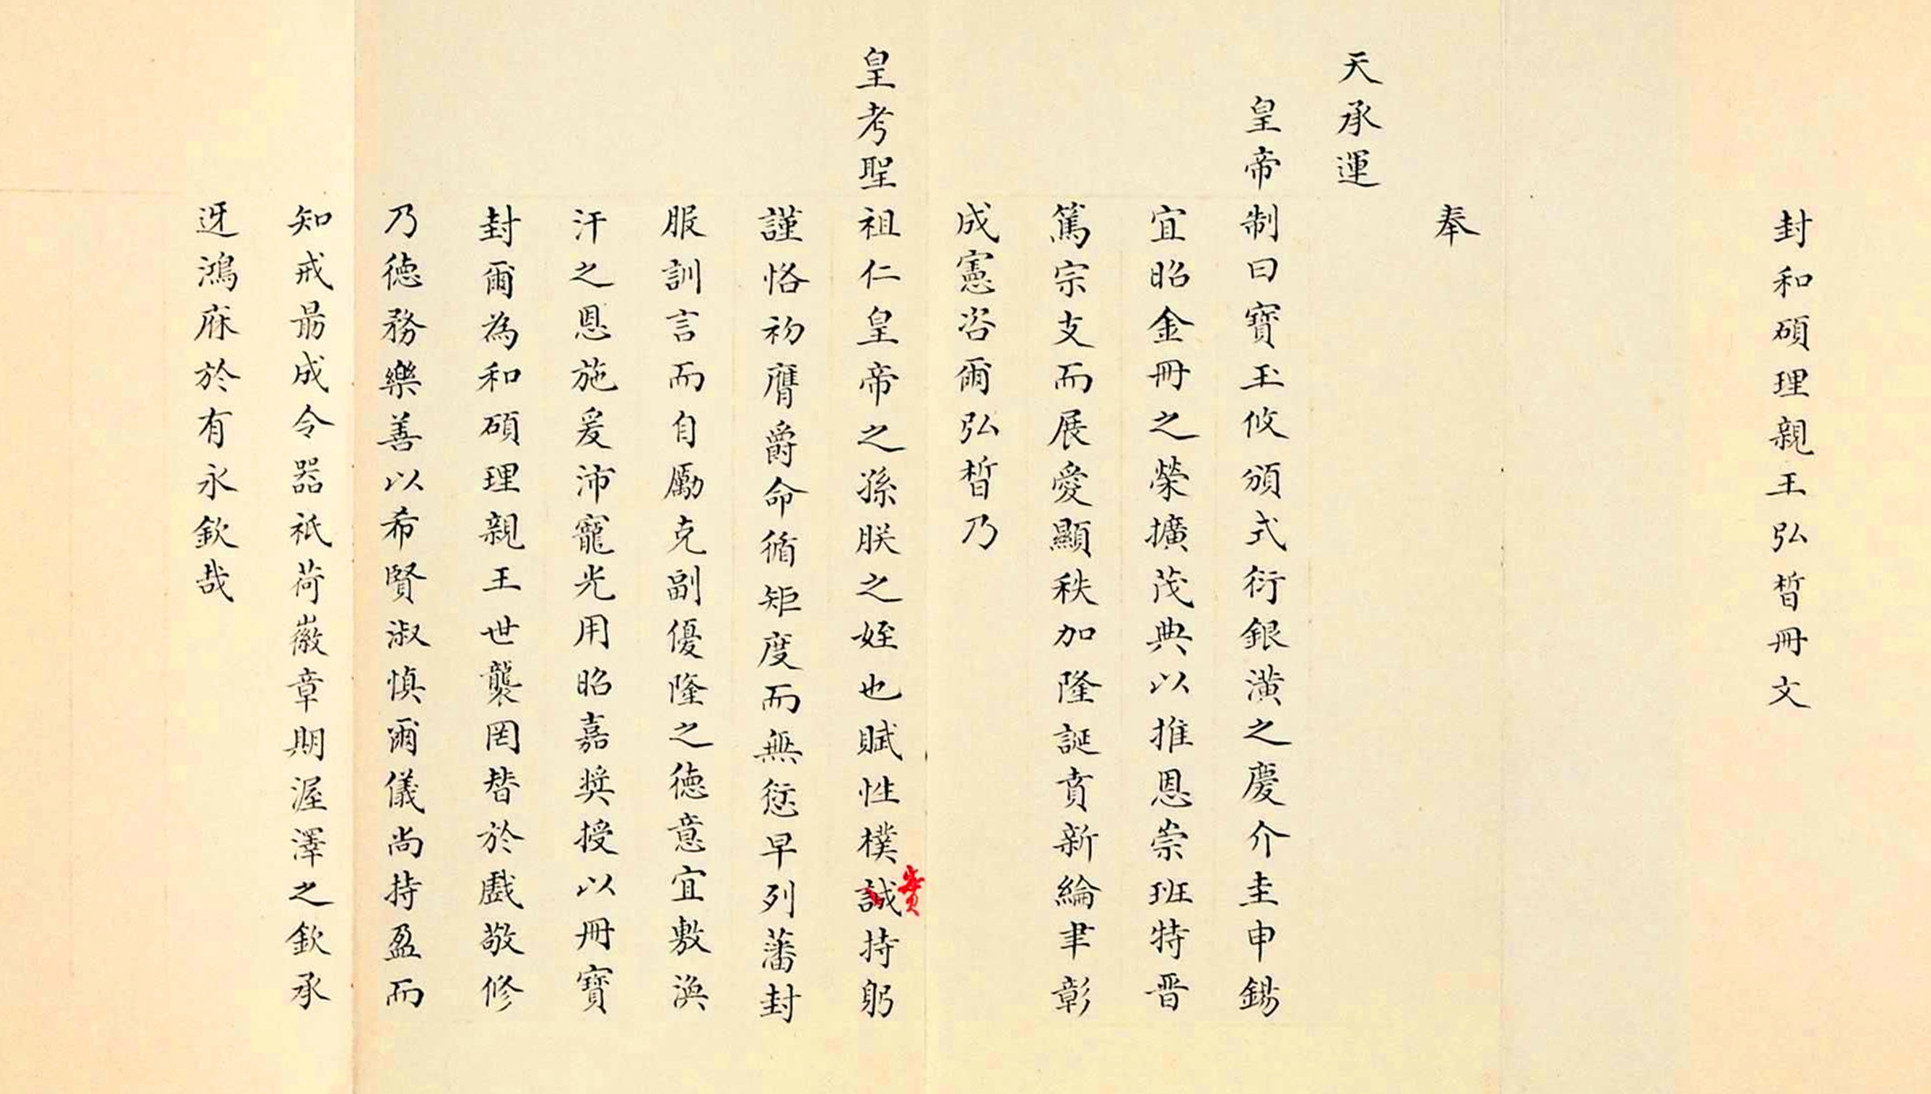 封和碩理親王弘晳冊文
奉
天承運
皇帝制曰寶玉攸頒式衍銀潢之慶介圭申錫
宜昭金冊之榮擴茂典以推恩崇班特晉
篤宗支而展愛顯秩加隆誕賁新綸聿彰
成憲咨爾弘晳乃
皇考聖祖仁皇帝之孫朕之姪也賦性樸誠持躬
實
謹恪初膺爵命循矩度而無愆早列藩封
服訓言而自勵克副優隆之德意宜敷渙
汗之恩施爰沛寵光用昭嘉奬授以冊寶
封爾為和碩理親王世襲罔替於戲敬修
乃德務樂善以希賢淑慎爾儀尚持盈而
知戒勗成令器祇荷徽章期渥澤之欽承
迓鴻庥於有永欽哉